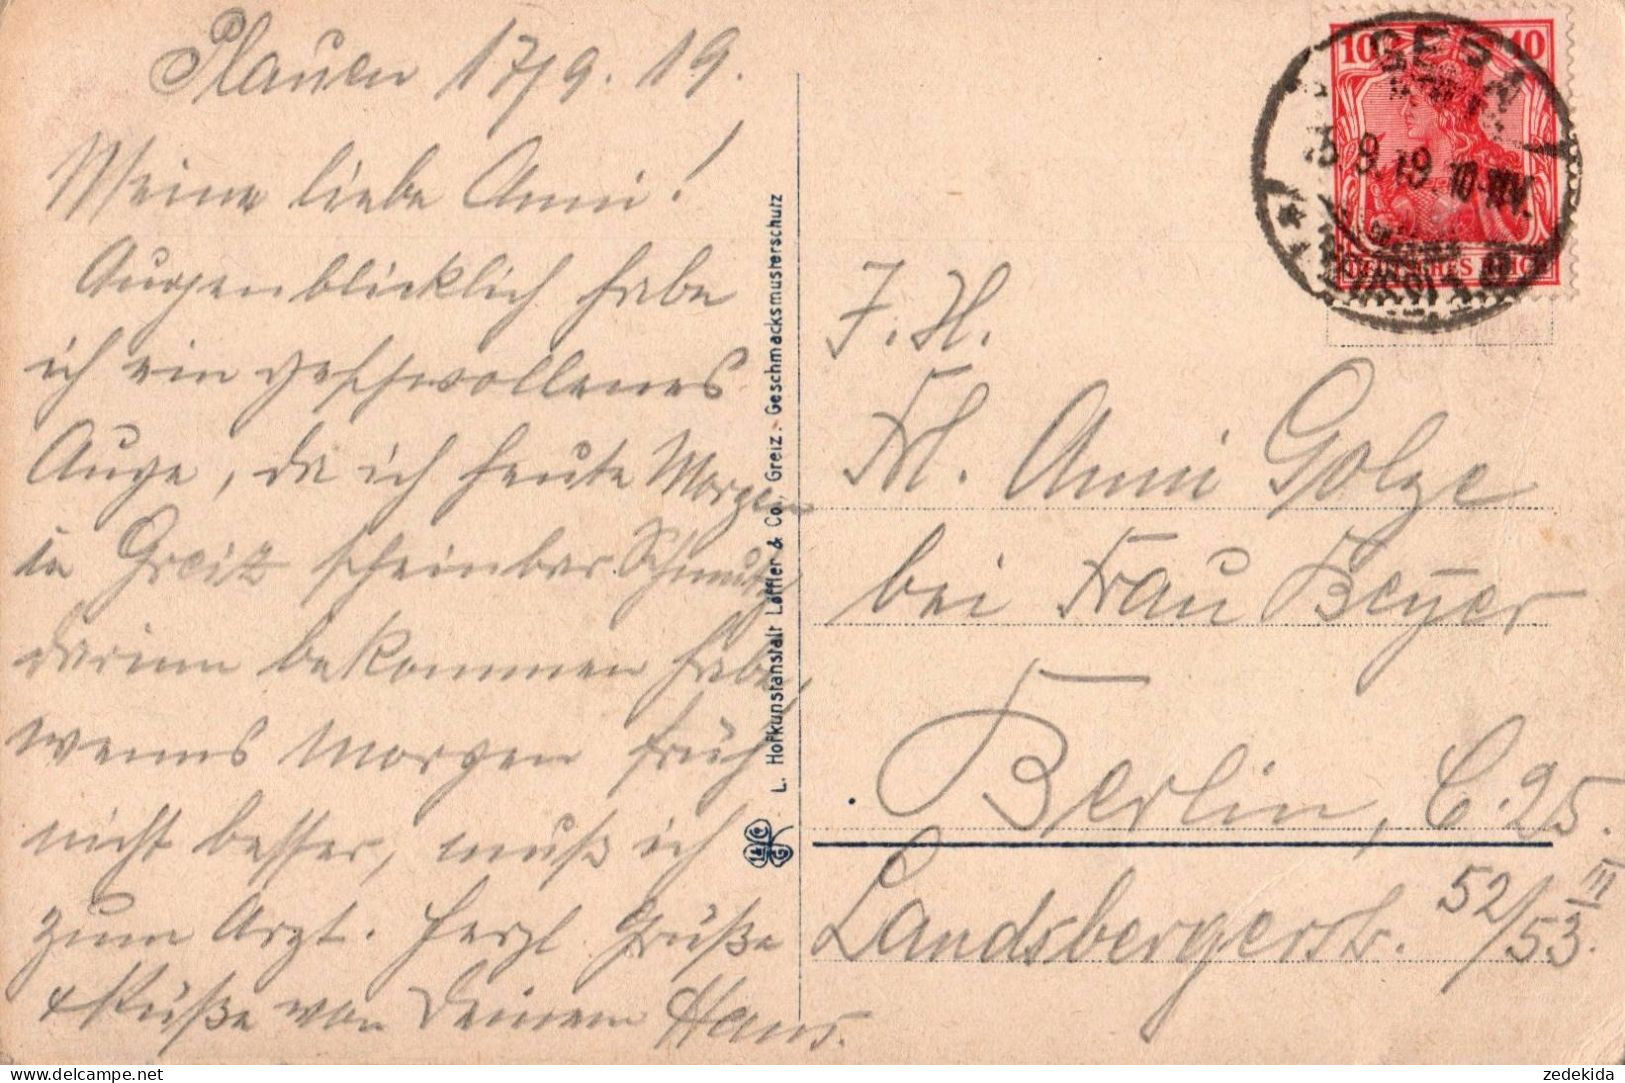 Plauen 17/9. 19.
Meine liebe Anni!
Augenblicklich habe
ich ein geschwollenes
Auge, da ich heute Morgen
in Greitz scheinbar Schmutz
darinn bekommen habe,
wenns morgen früh
nicht besser, muß ich
zum Arzt. Herzl. Grüße
& Küße von Deinem Hans.
L. Hofkunstanstalt Löffler & Co., Greiz.- Geschmacksmusterschutz
10 10
DEUTSCHES REICH
9.19 10-11V.
F. H.
Frl. Anni Golze
bei Frau Beyer
Berlin, C. 25.
Landsbergerstr. 52/53 III.
zedekida